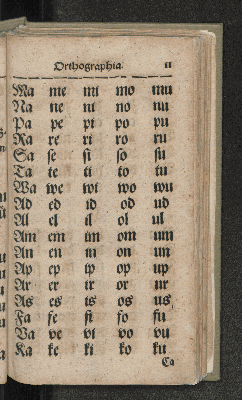 Orthographia. 11
Ma me mi mo mu
Na ne ni no nu
Pa pe pi po pu
Ra re ri ro ru
Sa se si so su
Ta te ti to tu
Wa we wi wo wu
Ad ed id od ud
Al el il ol ul
Am em im om um
An en in on un
Ap ep ip op up
Ar er ir or ur
As es is os us
Fa fe fi fo fu
Va ve vi vo vu
Ka ke ki ko ku
Ca